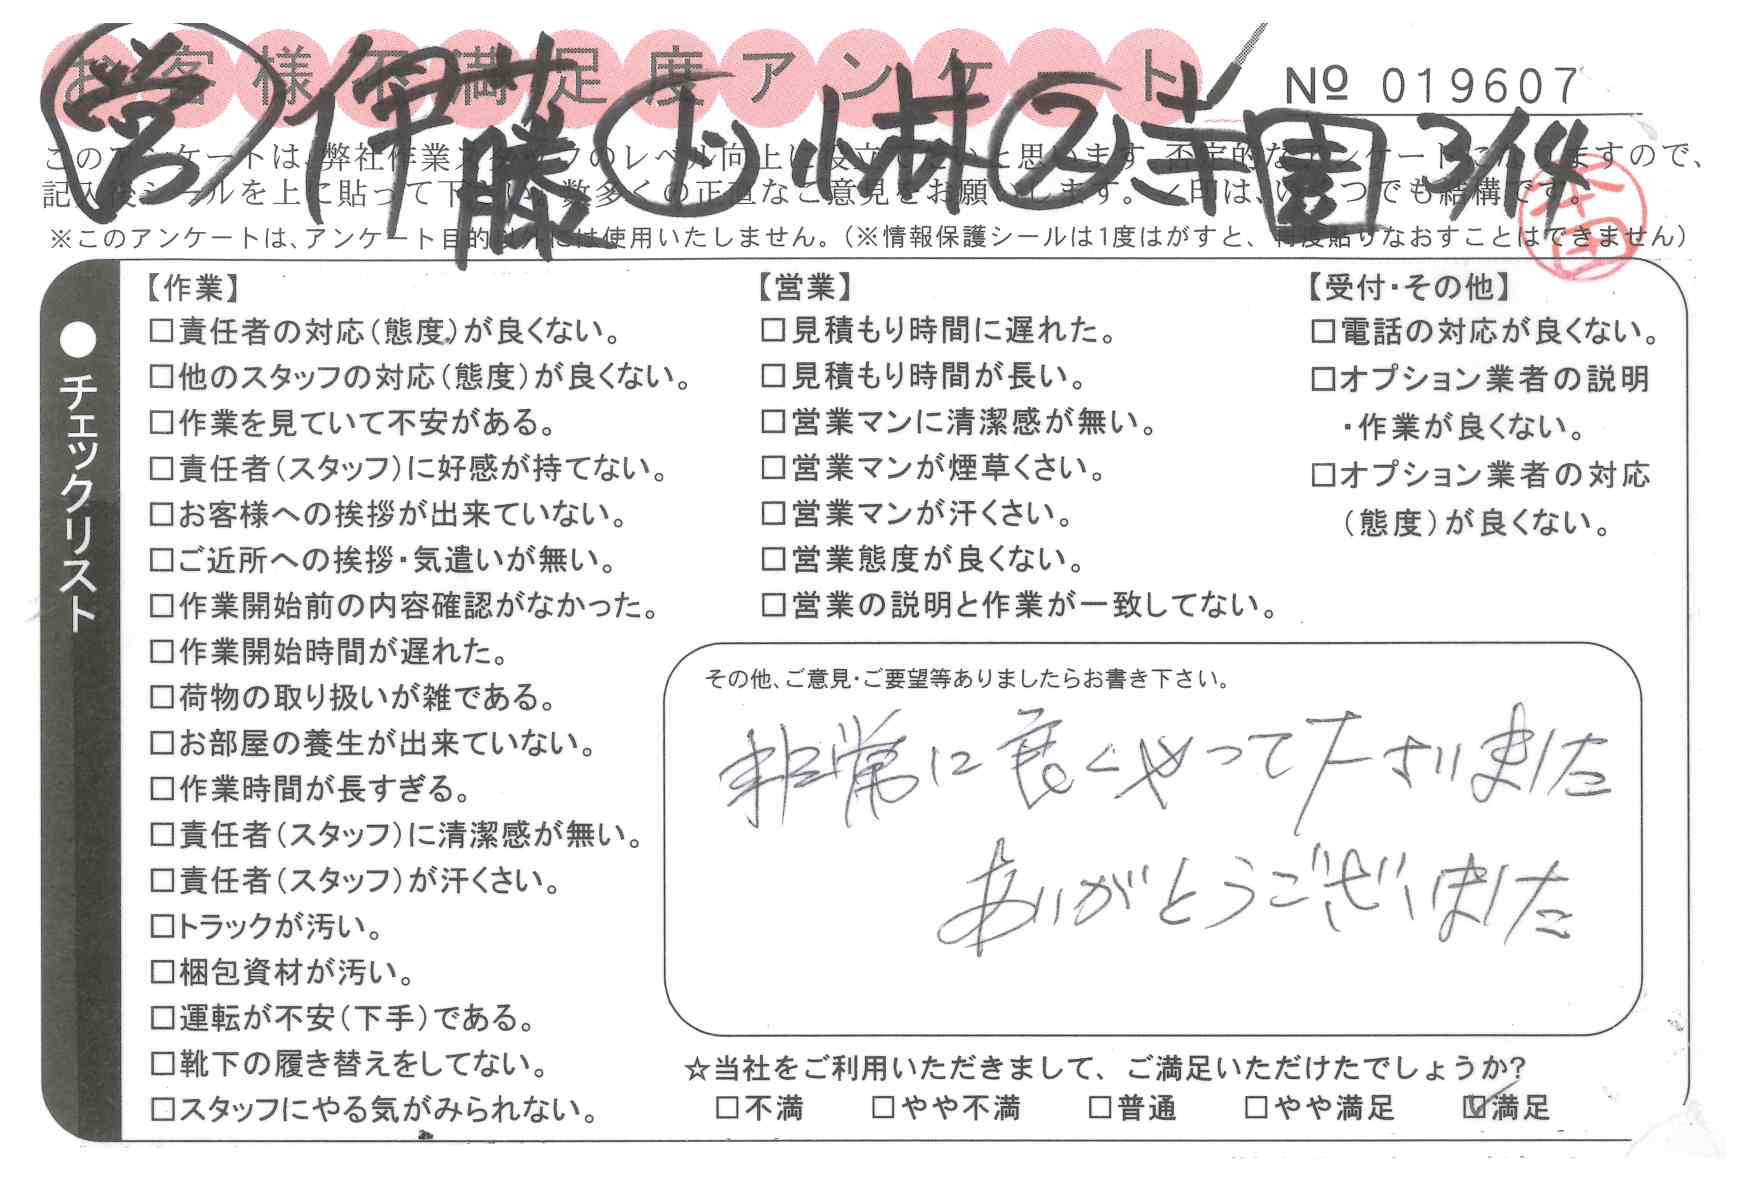 お客様不満足度アンケート
№ 019607
営 伊藤 ① 小林 ② 寺園 3/14
このアンケートは、弊社作業スタッフのレベル向上に役立てたいと思います。否定的なアンケートになりますので、
記入後シールを上に貼って下さい。数多くの正直なご意見をお願いします。✓印は、いくつでも結構です。
※このアンケートは、アンケート目的以外には使用いたしません。（※情報保護シールは1度はがすと、再度貼りなおすことはできません）
●チェックリスト
【作業】
□責任者の対応（態度）が良くない。
□他のスタッフの対応（態度）が良くない。
□作業を見ていて不安がある。
□責任者（スタッフ）に好感が持てない。
□お客様への挨拶が出来ていない。
□ご近所への挨拶・気遣いが無い。
□作業開始前の内容確認がなかった。
□作業開始時間が遅れた。
□荷物の取り扱いが雑である。
□お部屋の養生が出来ていない。
□作業時間が長すぎる。
□責任者（スタッフ）に清潔感が無い。
□責任者（スタッフ）が汗くさい。
□トラックが汚い。
□梱包資材が汚い。
□運転が不安（下手）である。
□靴下の履き替えをしてない。
□スタッフにやる気がみられない。
【営業】
□見積もり時間に遅れた。
□見積もり時間が長い。
□営業マンに清潔感が無い。
□営業マンが煙草くさい。
□営業マンが汗くさい。
□営業態度が良くない。
□営業の説明と作業が一致してない。
【受付・その他】
□電話の対応が良くない。
□オプション業者の説明
・作業が良くない。
□オプション業者の対応
（態度）が良くない。
その他、ご意見・ご要望等ありましたらお書き下さい。
非常に良くやって下さいました
ありがとうございました
☆当社をご利用いただきまして、ご満足いただけたでしょうか?
□不満 □やや不満 □普通 □やや満足 ☑満足